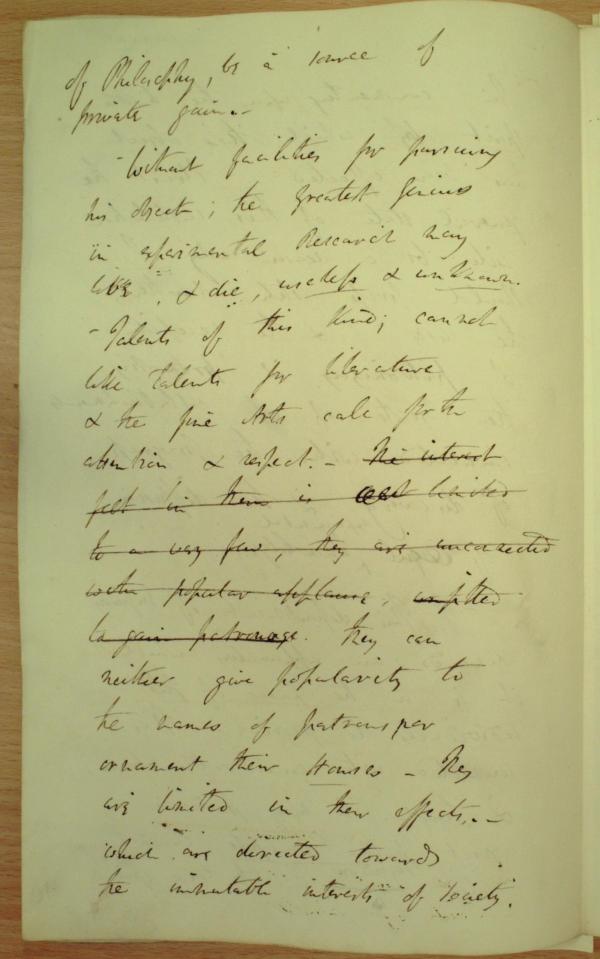 of Philosophy, be a source of
private gain.-
- Without facilities for pursuing
his object; the greatest Genius
in experimental Research may
live, & die, useless & unknown.
- Talents of this kind; cannot
like talents for literature
& the fine Arts call forth
attention & respect. - The interest
felt in them is limited
to a very few, they are unconnected
with popular applause, unfitted
to gain patronage. They can
neither give popularity to
the names of patrons nor
ornament their Houses - They
are limited in their effects.-
which are directed towards
the immutable interests of Society.